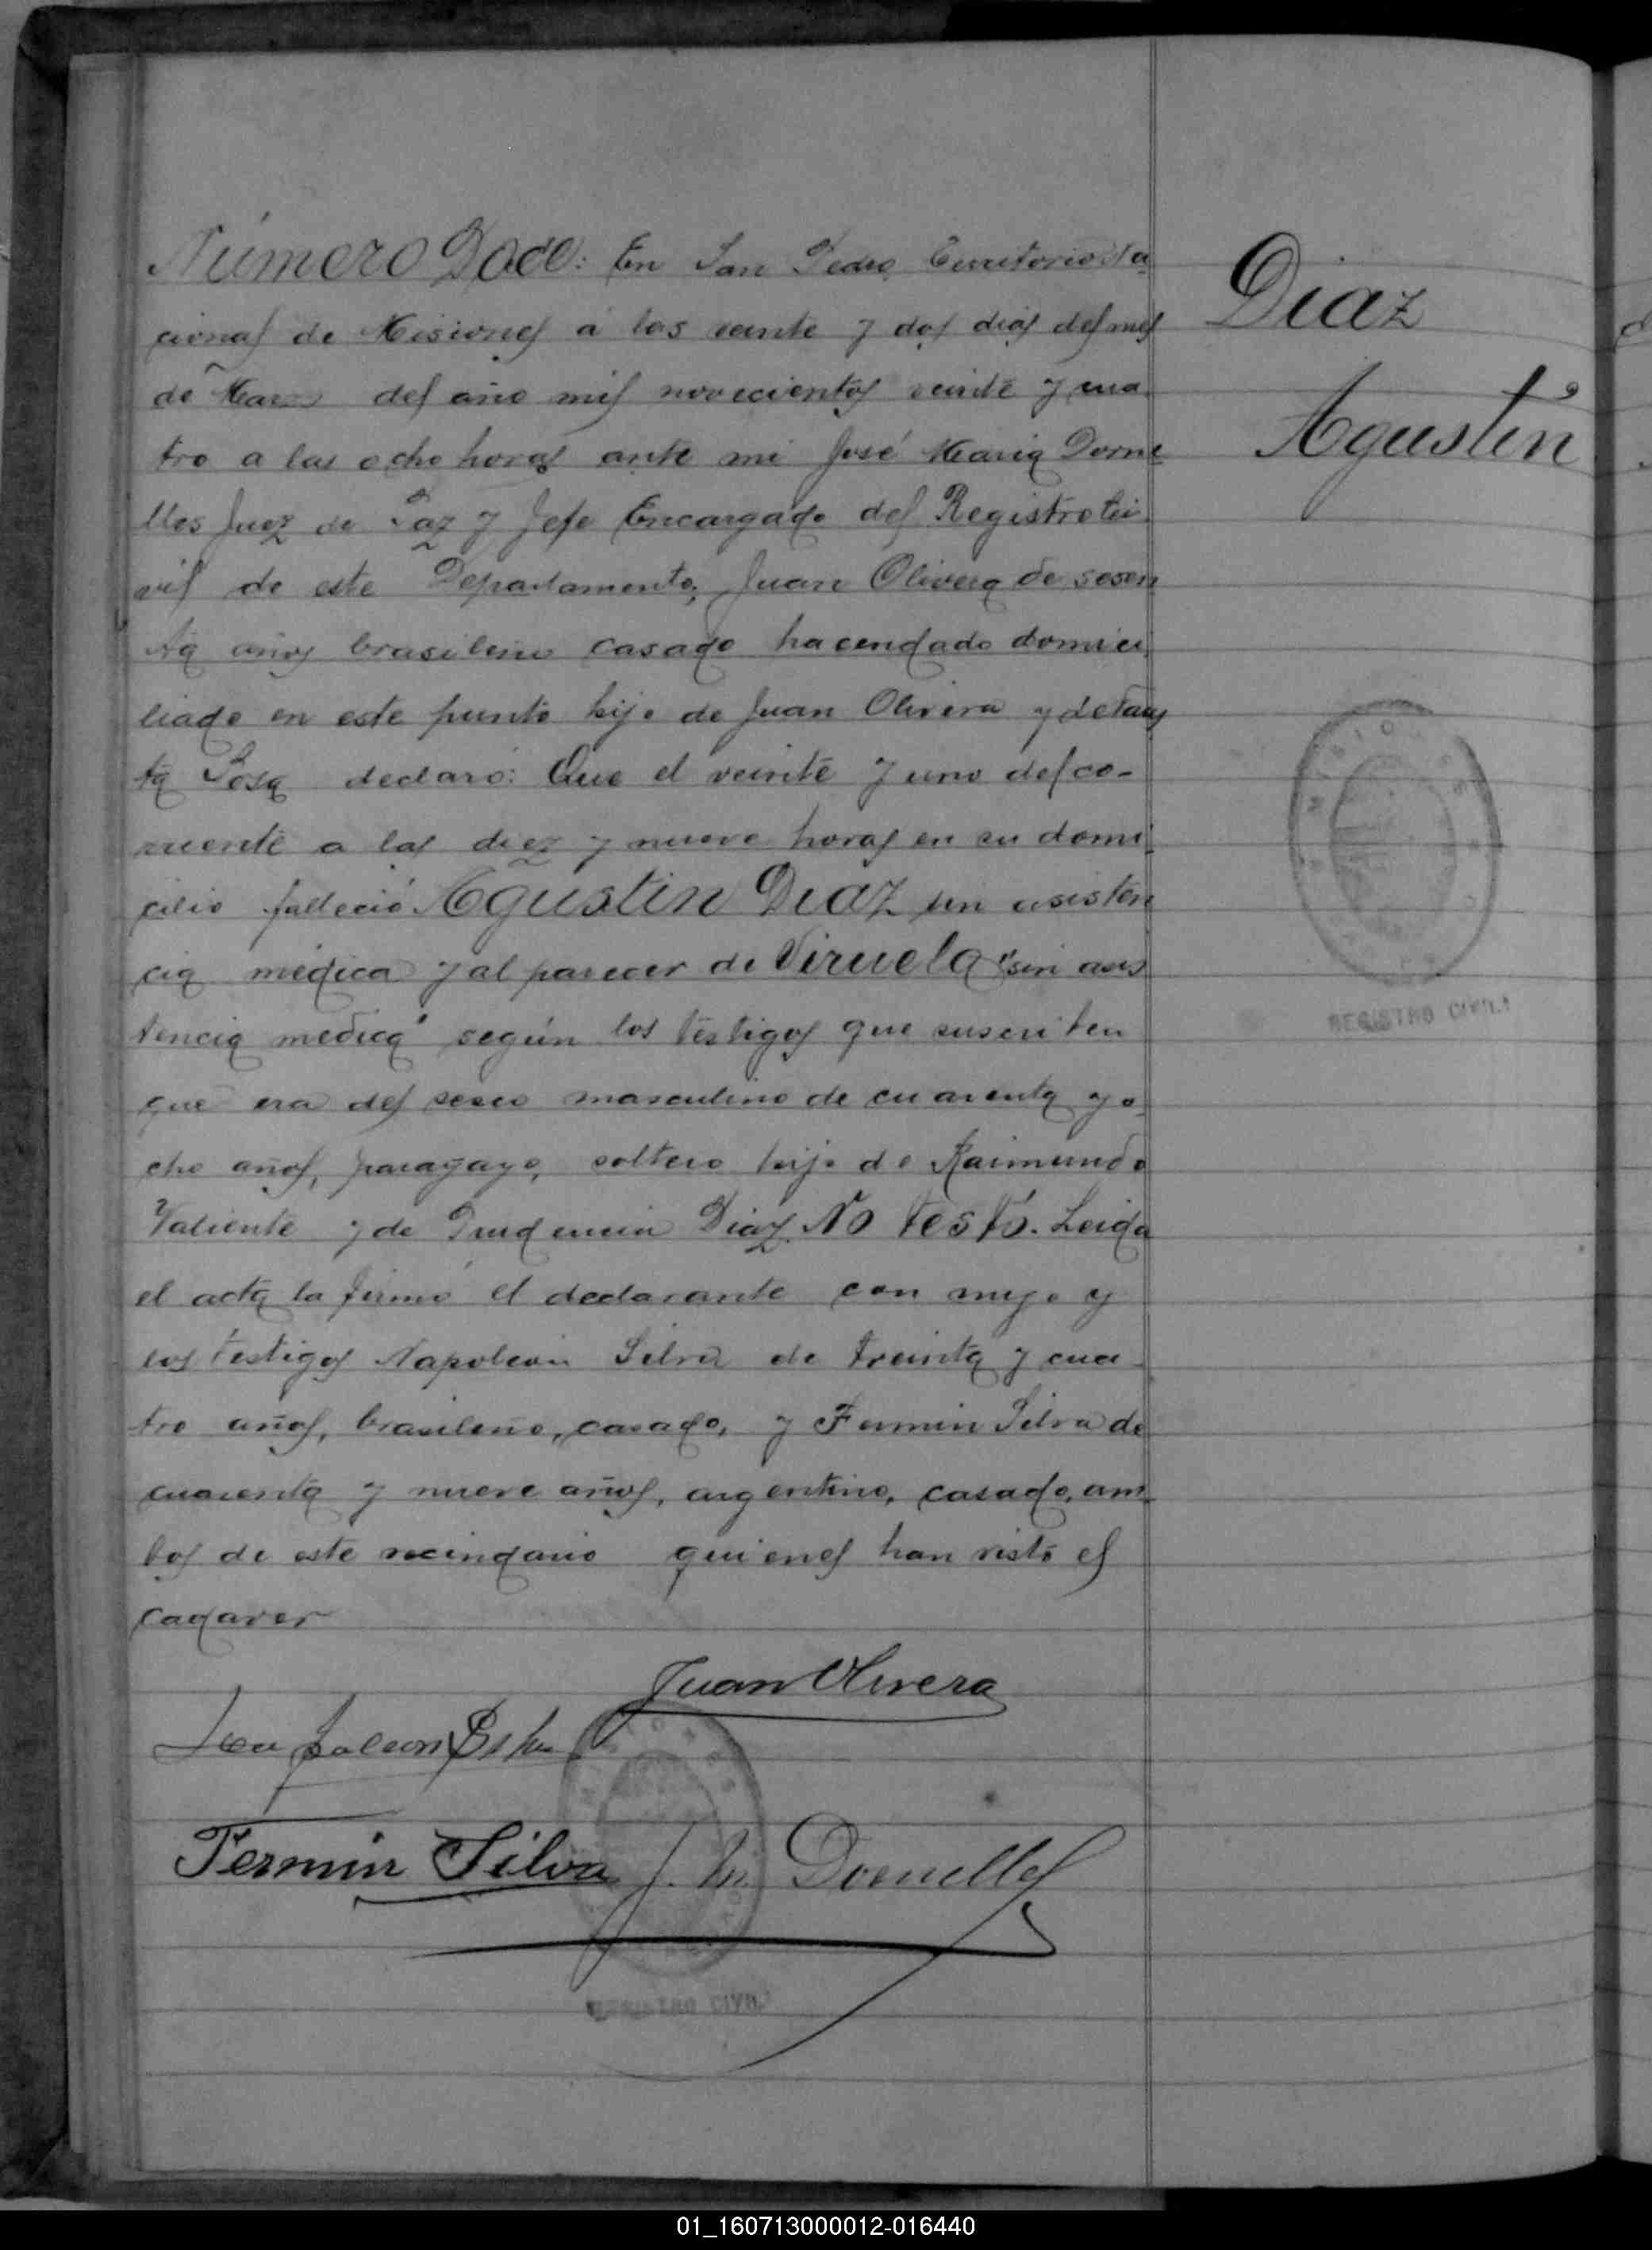 Número Doce: En San Pedro Territorio Na
cional de Misiones á los veinte y dos dias del mes
de Marzo del año mil novecientos veinte y cua
tro a las ocho horas ante mi José Maria Dorne
lles Juez de Paz y Jefe Encargado del Registro Ci
vil de este Departamento, Juan Olivera de sesen
ta años brasileño casado hacendado domici
liado en este punto hijo de Juan Olivera y de
ta Rosa declaró: Que el veinte y uno del co-
rriente a las diez y nueve horas en su domi
cilio falleció Agustin Diaz sin asisten
cia médica y al parecer de Viruela "sin asis
tencia medica" según los testigos que suscriben
que era del sexo masculino de cuarenta y o
cho años, paragayo, soltero hijo de Raimundo
Valiente y de Prudencia Diaz. No testó. Leida
el acta la firmó el declarante con migo y
los testigos Napoleón Silva de treinta y cua
tro años, brasileño, casado, y Fermin Silva de
cuarenta y nueve años, argentino, casado, am
bos de este vecindario quienes han visto el
cadaver
Juan Olivera
Fermin Silva J. M. Dornelles
REGISTRO CIVIL
Diaz
Agustin
MISIONES
REGISTRO CIVIL
01_160713000012-016440